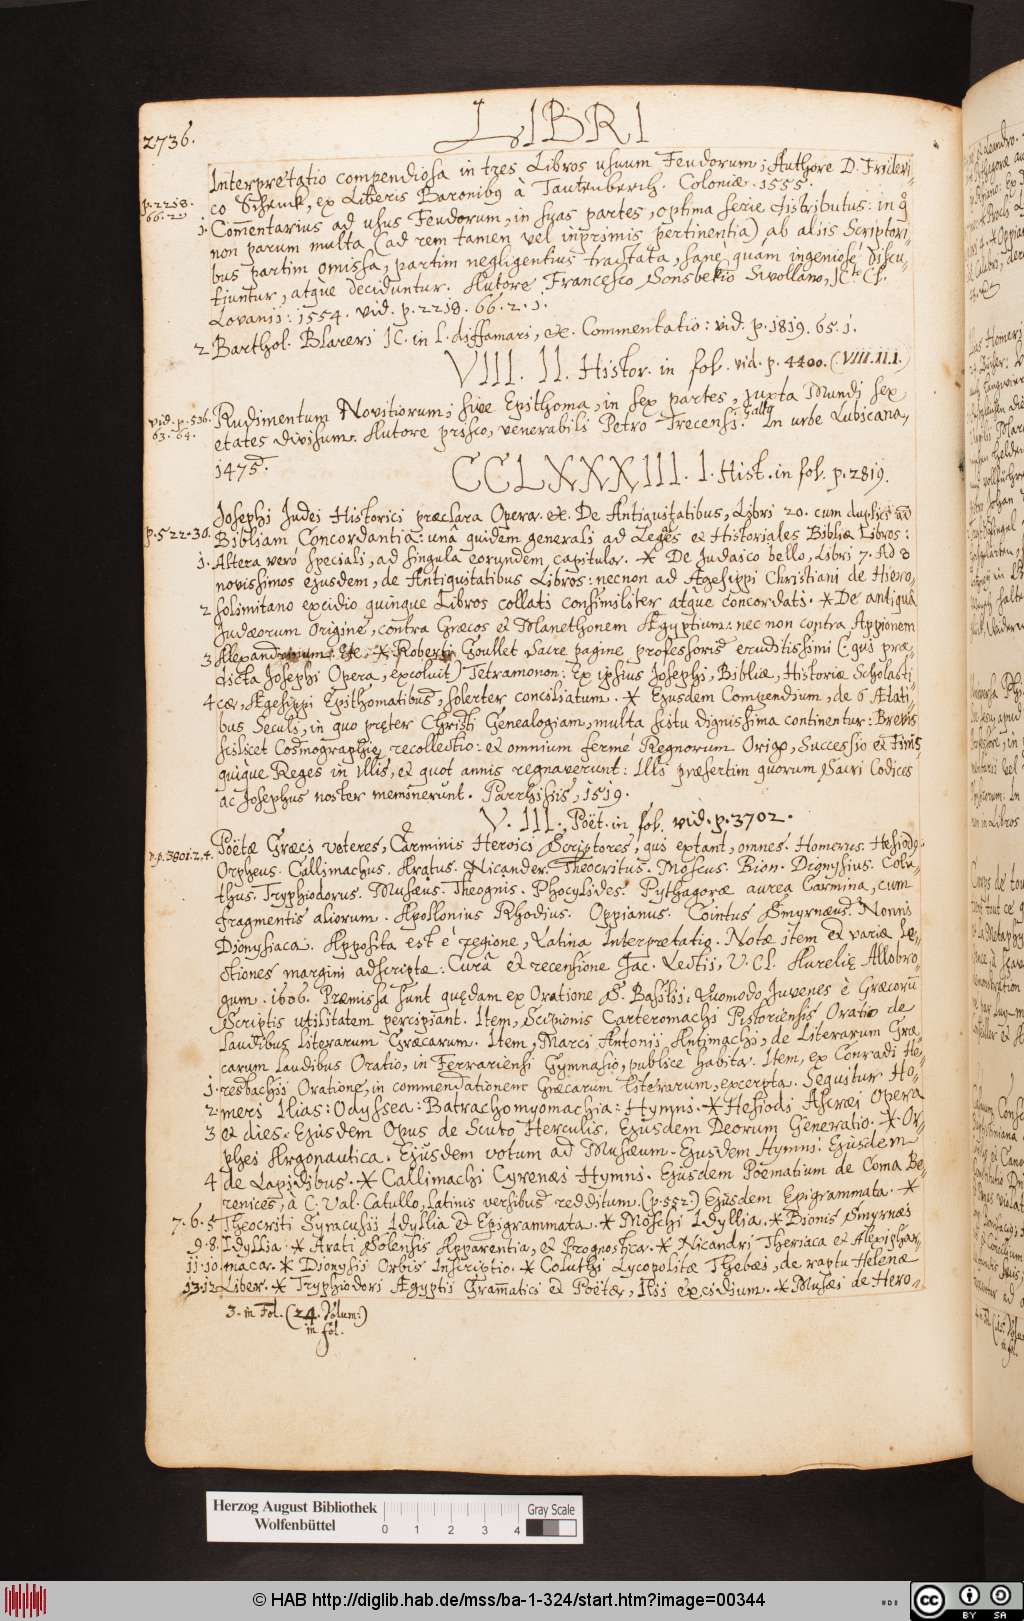 LIBRI
2736.
Interpretatio compendiosa in tres Libros usuum Feudorum; Authore D. Frideri-
co Schenck, ex Liberis Baronibq à Tautenberch. Coloniæ. 1555.
p. 2218. 66. 2.
1. Comentarius ad usus Feudorum, in suas partes, optima serie distributus: in q
non parum multa (ad rem tamen vel inprimis pertinentia) ab aliis Scriptori-
bus partim omissa, partim negligentius tractata, sanè quàm ingeniosè discu-
tiuntur, atque deciduntur. Autore Francesco Sonsbekio Sivollano, JCto Cl.
Lovanii: 1554. vid. p. 2218. 66. 2. 1.
2 Barthol. Blareri JC. in L. diffamari, &c. Commentatio: vid. p. 1819. 65. 1.
VIII. II. Histor. in fol. vid. p. 4400. (VIII. II. 1.)
vid. p. 536. 63. 64.
Rudimentum Novitiorum; sive Epithoma, in sex partes, juxta Mundi sex
etates divisum. Autore prisco, venerabili Petro Trecensi. Gallo In urbe Lubicana,
1475.
CCLXXXIII. 1. Hist. in fol. p. 2819.
Josephi Judei Historici præclara Opera. &c. De Antiquitatibus, Libri 20. cum duplici ad
p. 522. 30. Bibliam Concordantia: unâ quidem generali ad Leges et Historiales Bibliæ Libros:
1. Altera verò speciali, ad singula eorundem capitula. * De Judaico bello, Libri 7. Ad 8
novissimos ejusdem, de Antiquitatibus Libros: necnon ad Agesippi Christiani de Hiero-
2 solimitano excidio quinque Libros collati consimiliter atque concordati. * De antiquâ
Judæorum Origine, contra Græcos et Manethonem Ægyptium: nec non contra Appionem
3 Alexandrinum: &c. * Roberti Goullet Sacre pagine professoris eruditissimi (: qui præ-
dicta Josephi Opera, excoluit) Tetramonon: Ex ipsius Josephi, Bibliæ, Historiæ Scholasti-
4 cæ, Ægesippi Epithomatibus, solerter conciliatum. * Ejusdem Compendium, de 6 Ætati-
bus Seculi, in quo pręter Christi Genealogiam, multa scitu dignissima continentur: Brevis
scilicet Cosmographię recollectio: et omnium fermè Regnorum Origo, Successio et Finis,
quique Reges in illis, et quot annis regnaverunt: Illi præsertim quorum Sacri Codices
ac Josephus noster meminerunt. Parrhisiis, 1519.
V. III. Poët. in fol. vid. p. 3702.
v. p. 3801. 2. 4.
Poëtæ Græci veteres, Carminis Heroici Scriptores, qui extant, omnes. Homerus. Hesiodq.
Orpheus. Callimachus. Aratus. Nicander. Theocritus. Moscus. Bion. Dionysius. Colu-
thus. Tryphiodorus. Musæus. Theognis. Phocylides. Pythagoræ aurea Carmina, cum
fragmentis aliorum. Apollonius Rhodius. Oppianus. Cointus Smyrnæus. Nonni
Dionysiaca. Apposita est è regione, Latina Interpretatio. Notæ item et variæ Le-
ctiones margini adscriptæ: Curâ et recensione Jac. Lectii, V. Cl. Aurelię Allobro-
gum. 1606. Præmissa sunt quędam ex Oratione S. Basilii, Quomodo Juvenes è Græcoru
Scriptis utilitatem percipiant. Item, Scipionis Carteromachi Pistoriensis Oratio de
laudibus literarum Græcarum. Item, Marci Antonii Antimachi, de Literarum Græ-
carum laudibus Oratio, in Ferrariensi Gymnasio, publicè habita. Item, ex Conradi He-
1. resbachij Oratione, in commendationem Græcarum literarum, excerpta. Sequitur Ho-
2. meri Ilias: Odyssea: Batrachomyomachia: Hymni. * Hesiodi Ascræi Opera
3 et dies. Ejusdem Opus de Scuto Herculis. Ejusdem Deorum Generatio. * Or-
phei Argonautica. Ejusdem votum ad Musæum. Ejusdem Hymni. Ejusdem
4 de Lapidibus. * Callimachi Cyrenæi Hymni. Ejusdem Poëmatium de Coma Be-
renices, à C. Val. Catullo, Latinis versibus redditum. (p. 552.) Ejusdem Epigrammata. *
7. 6. 5 Theocriti Syracusii Idyllia & Epigrammata. * Moschi Idyllia. * Bionis Smyrnæi
9. 8. Idyllia. * Arati Solensis Apparentia, et Prognostica. * Nicandri Theriaca et Alexiphar-
11. 10. maca. * Dionysii Orbis Descriptio. * Coluthi Lycopolitæ Thebæi, de raptu Helenæ
13. 12. Liber. * Tryphiodori Ægyptii Gramatici et Poëtæ, Ilii excidium. * Musæi de Hero-
3. in Fol. (24. Volum:)
in fol.
Herzog August Bibliothek
Wolfenbüttel
0 1 2 3 4
Gray Scale
© HAB http://diglib.hab.de/mss/ba-1-324/start.htm?image=00344
BY SA